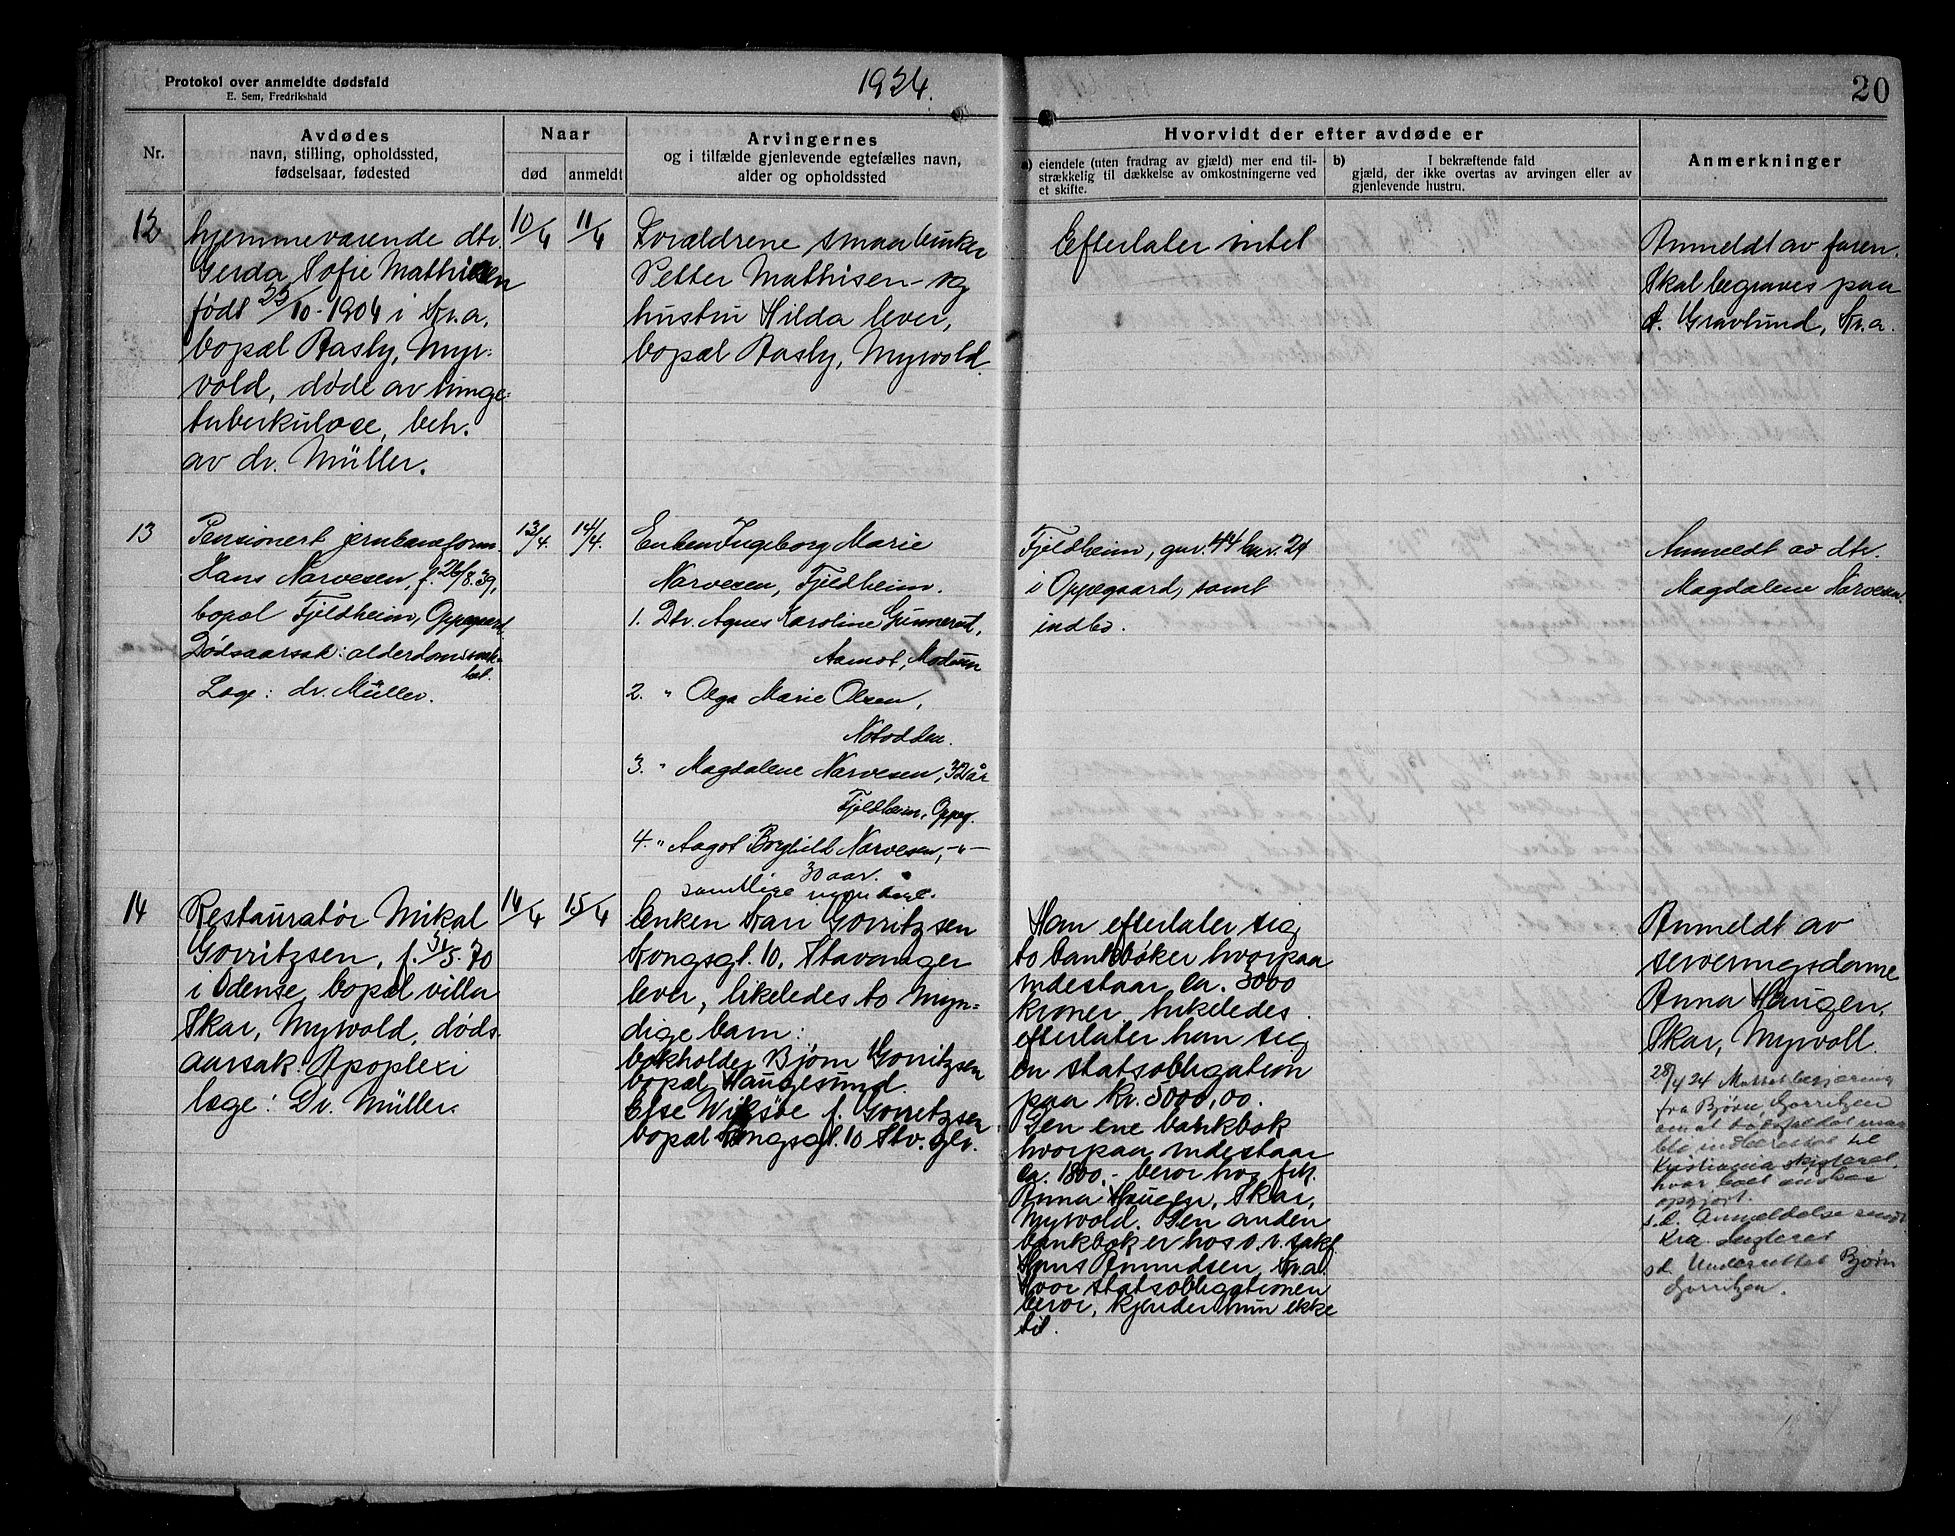 Protokol over anmeldte dødsfald
E. Sem, Fredrikshald
1924.
20
Nr.
Avdødes
navn, stilling, opholdssted,
fødselsaar, fødested
Naar
død
anmeldt
Arvingernes
og i tilfælde gjenlevende egtefælles navn,
alder og opholdssted
Hvorvidt der efter avdøde er
a) eiendele (uten fradrag av gjæld) mer end til-
strækkelig til dækkelse av omkostningerne ved
et skifte.
b) I bekræftende fald
gjæld, der ikke overtas av arvingen eller av
gjenlevende hustru.
Anmerkninger
12
hjemmeværende dtr.
Gerda Sofie Mathisen
født /10-1904 i Kr.a,
bopæl Rasby, Myr-
vold, døde av lunge-
tuberkulose, beh.
av dr. Müller.
10/4
11/4
Forældrene smaabruker
Petter Mathisen og
hustru Hilda lever,
bopæl Rasby, Myrvold
Efterlater intet
Anmeldt av faren.
Skal begraves paa
Gravlund, Kr.a.
13
Pensionert jernbaneform.
Hans Narvesen, f. 26/8.39,
bopæl Fjeldheim, Oppegaard.
Dødsaarsak: alderdomssvak-
het.
Læge: dr. Müller.
13/4.
14/4.
Enken Ingeborg Marie
Narvesen, Fjeldheim.
1. Dtr. Agnes Karoline Gunnerud,
Aamot, Modum
2. " Olga Marie Olsen,
Notodden.
3. " Magdalene Narvesen, 32 år
Fjeldheim, Oppeg.
4. " Aagot Borghild Narvesen, -"-
30 aar.
samtlige myndige.
Fjeldheim, gnr. 44 bnr. 24
i Oppegaard, samt
indbo.
Anmeldt av dtr.
Magdalene Narvesen.
14
Restauratør Mikal
Gorritzsen, f. 31/5.70
i Odense, bopæl villa
Skar, Myrvold, døds-
aarsak: Apoplexi
læge: Dr. Müller.
14/4
15/4
Enken Kari Gorritzsen
Kongsgt. 10, Stavanger
lever, likeledes to myn-
dige barn:
bokholder Bjørn Gorritzsen
bopæl Haugesund.
Else Wiksøe f. Gorritzsen
bopæl Kongsgt. 10 Stv.gr.
Han efterlater sig
to bankbøker hvorpaa
indestaar ca. 3000
kroner, likeledes
efterlater han sig
en statsobligation
paa Kr. 5000,00.
Den ene bankbok
hvorpaa indestaar
ca. 1800,- beror hos frk.
Anna Haugen, Skar,
Myrvold. Den anden
bankbok er hos o.r. sakf.
Hans Amundsen, Kr.a.
Hvor statsobligationen
beror, kjender hun ikke
til.
Anmeldt av
serveringsdame
Anna Haugen,
Skar, Myrvoll.
28/4 24 Mottat begjæring
fra Bjørn Gorritzen
om at dødsfaldet maa
bli indberettet til
Kristiania skifteret,
hvor boet ønskes
opgjort.
s.d. Anmeldelse sendt
Kra skifteret
s.d. Underrettet Bjørn
Gorritzen.